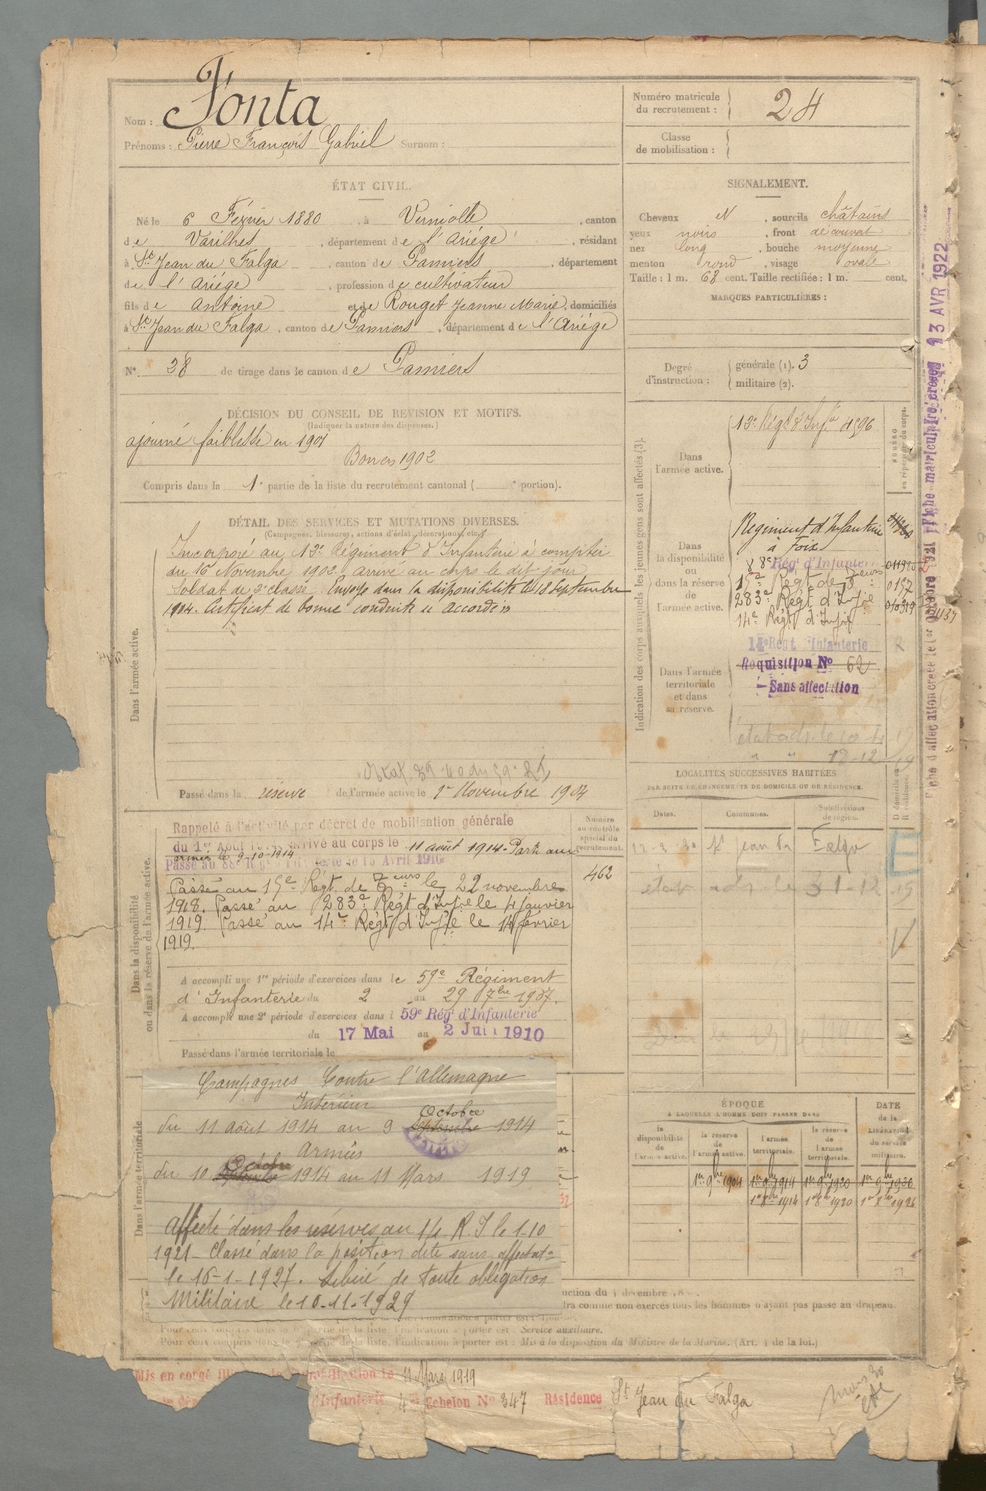 Nom : Fonta
Prénoms : Pierre François Gabriel Surnom :
Numéro matricule du recrutement : 24
Classe de mobilisation :
ÉTAT CIVIL.
Né le 6 Février 1880 à Verniolle, canton
de Varilhes, département de l'Ariége, résidant
à St Jean du Falga, canton de Pamiers, département
de l'Ariége, profession de cultivateur
fils de Antoine et de Rouget Jeanne Marie, domiciliés
à St Jean du Falga, canton de Pamiers, département de l'Ariége
N° 28 de tirage dans le canton de Pamiers
SIGNALEMENT.
Cheveux N, sourcils châtains
yeux noirs, front découvert
nez long, bouche moyenne
menton rond, visage ovale
Taille : 1 m. 68 cent. Taille rectifiée : 1 m. cent.
MARQUES PARTICULIÈRES :
Degré d'instruction : générale (1). 3
militaire (2).
DÉCISION DU CONSEIL DE REVISION ET MOTIFS.
(Indiquer la nature des dispenses.)
ajourné faiblesse en 1901
Bon en 1902
Compris dans la 1e partie de la liste du recrutement cantonal ( portion).
DÉTAIL DES SERVICES ET MUTATIONS DIVERSES.
(Campagnes, blessures, actions d'éclat, décorations, etc.)
Dans l'armée active.
Incorporé au Régiment d'Infanterie à compter
du 16 Novembre 1902. arrivé au corps le dit jour
Soldat de 2e classe. Envoyé dans la disponibilité le 18 Septembre
1904. Certificat de bonne conduite accordé
Passé dans la réserve de l'armée active le 1er Novembre 1904
Indication des corps auxquels les jeunes gens sont affectés (3).
Dans l'armée active.
Régt d'Infie
Dans la disponibilité ou dans la réserve de l'armée active.
Régiment d'Infanterie
à Foix
Rég' d'Infanterie
283e Régt d'Infie
14e Régt d'Infie
Dans l'armée territoriale et dans sa réserve.
14e Régt Infanterie
Réquisition N° 62
Sans affectation
Fiche matriculaire 13 AVR 1922
LOCALITÉS SUCCESSIVES HABITÉES
PAR SUITE DE CHANGEMENTS DE DOMICILE OU DE RÉSIDENCE.
Dates. Communes. Subdivisions de région.
St Jean du Falga
Dans la disponibilité ou dans la réserve de l'armée active.
Numéro au contrôle spécial du recrutement.
462
Rappelé à l'activité par décret de mobilisation générale
du 1er Août arrivé au corps le 11 août 1914. Parti aux
armées le 9-10-1914
Passé au 15e Régt de le 22 novembre
1918. Passé au 283e Régt d'Infie le 4 janvier
1919. Passé au 14e Régt d'Infie le 14 février
1919.
A accompli une 1re période d'exercices dans le 59e Régiment
d'Infanterie du 2 au 29 7bre 1907.
A accompli une 2e période d'exercices dans l 59e Rég' d'Infanterie
du 17 Mai au 2 Juin 1910
Passé dans l'armée territoriale le
Dans l'armée territoriale
Campagnes Contre l'Allemagne
Intérieur
Octobre
du 11 août 1914 au 9 Septembre 1914
Armées
Octobre
du 10 Septembre 1914 au 11 Mars 1919
Affecté dans les réserves au 14 R.I le 1-10
1921 - Classé dans la position dite sans affectat°
le 16-1-1927. Libéré de toute obligation
Militaire le 10-11-1929
ÉPOQUE
À LAQUELLE L'HOMME DOIT PASSER DANS
DATE de la LIBÉRATION du service militaire.
la disponibilité de l'armée active. la réserve de l'armée active. l'armée territoriale. la réserve de l'armée territoriale.
1er 9bre 1904 1er 9bre 1914 1er 9bre 1920 1er 9bre 1926
1er 8bre 1914 1er 8bre 1920 1er 8bre 1926
comme non exercés tous les hommes n'ayant pas passé au drapeau.
l'indication à porter est : Service auxiliaire.
l'indication à porter est : Mis à la disposition du Ministre de la Marine. (Art. 4 de la loi.)
Mis en congé le 11 Mars 1919
d'Infanterie 4e Echelon N° 347 Résidence St Jean du Falga